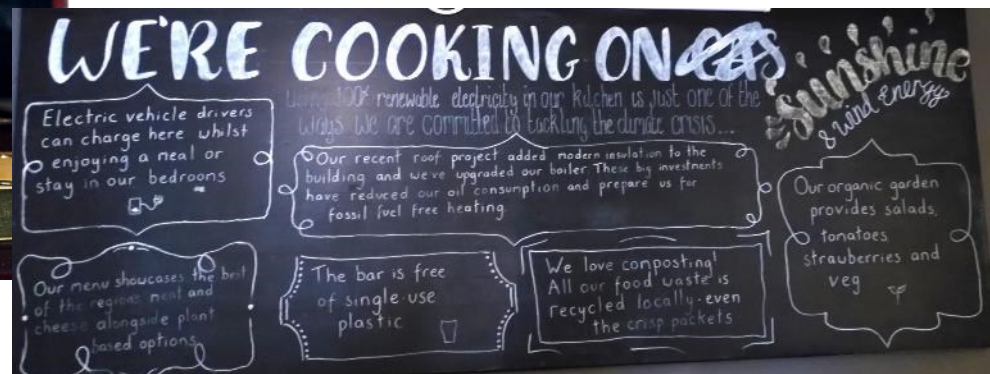 WE'RE COOKING ON GAS
sunshine
& wind energy
Using 100% renewable electricity in our kitchen is just one of the
ways we are committed to tackling the climate crisis...
Electric vehicle drivers
can charge here whilst
enjoying a meal or
stay in our bedrooms
Our recent roof project added modern insulation to the
building and we've upgraded our boiler. These big investments
have reduced our oil consumption and prepare us for
fossil fuel free heating
Our organic garden
provides salads,
tomatoes
strawberries and
veg
Our menu showcases the best
of the regions meat and
cheese alongside plant
based options
The bar is free
of single-use
plastic
We love composting!
All our food waste is
recycled locally - even
the crisp packets